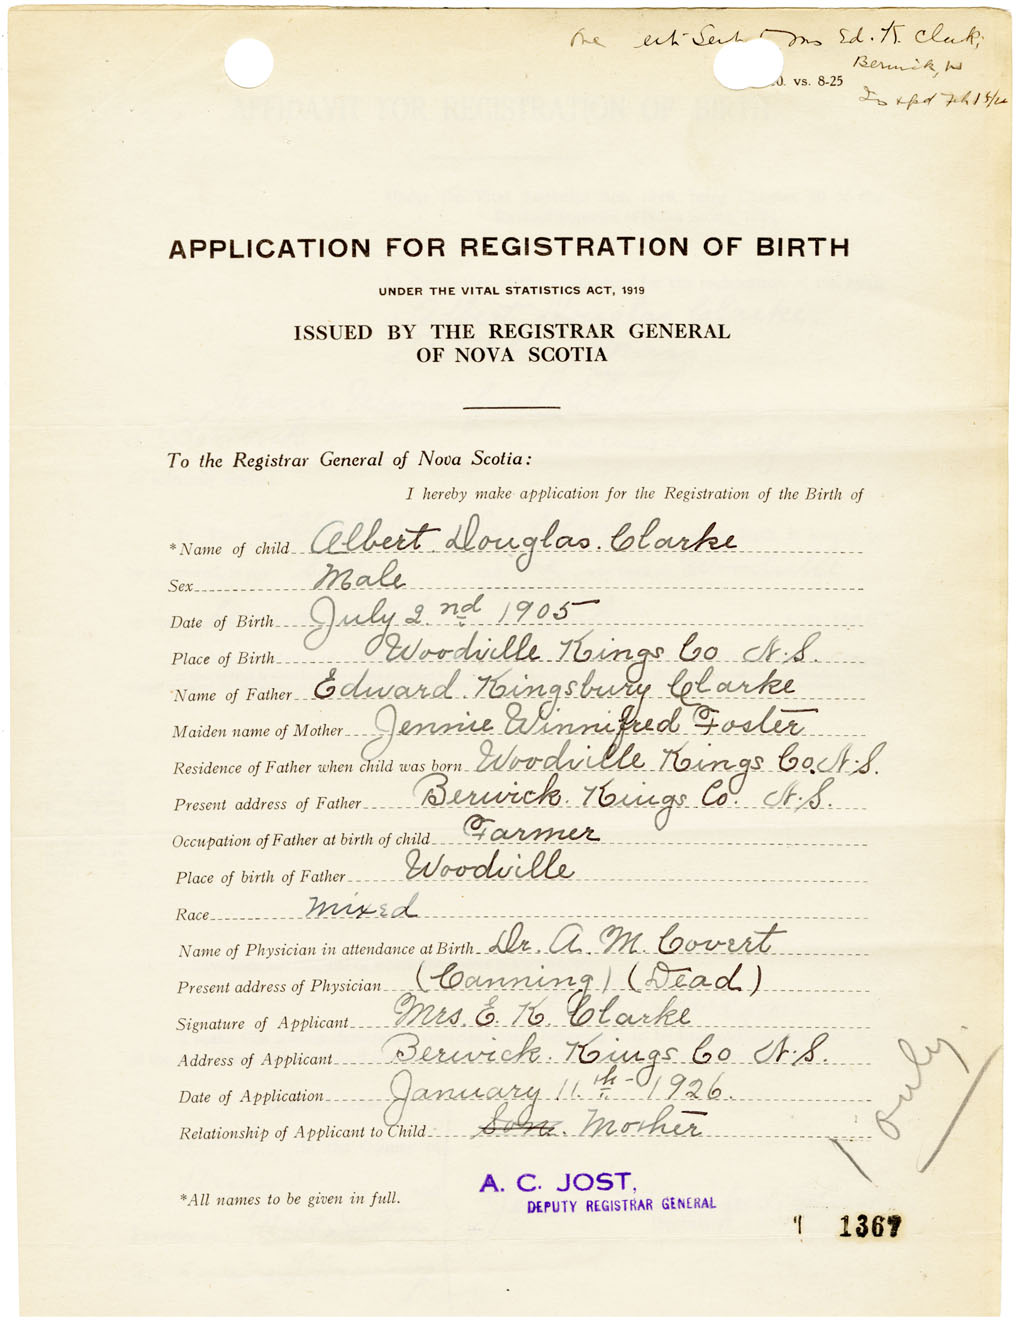 One cert Sent to Mrs Ed. K. Clark,
Berwick, N
0. vs. 8-25
APPLICATION FOR REGISTRATION OF BIRTH
UNDER THE VITAL STATISTICS ACT, 1919
ISSUED BY THE REGISTRAR GENERAL
OF NOVA SCOTIA
To the Registrar General of Nova Scotia:
I hereby make application for the Registration of the Birth of
*Name of child Albert. Douglas. Clarke
Sex Male
Date of Birth July 2nd 1905
Place of Birth Woodville Kings Co N.S.
Name of Father Edward. Kingsbury Clarke
Maiden name of Mother Jennie Winnifred Foster
Residence of Father when child was born Woodville Kings Co. N.S.
Present address of Father Berwick. Kings Co. N.S.
Occupation of Father at birth of child Farmer
Place of birth of Father Woodville
Race mixed
Name of Physician in attendance at Birth Dr. A. M. Covert
Present address of Physician (Canning) (Dead)
Signature of Applicant Mrs. E. K. Clarke
Address of Applicant Berwick. Kings Co N.S.
Date of Application January 11th 1926.
Relationship of Applicant to Child Son. Mother
1 only
*All names to be given in full.
A. C. JOST,
DEPUTY REGISTRAR GENERAL
1367